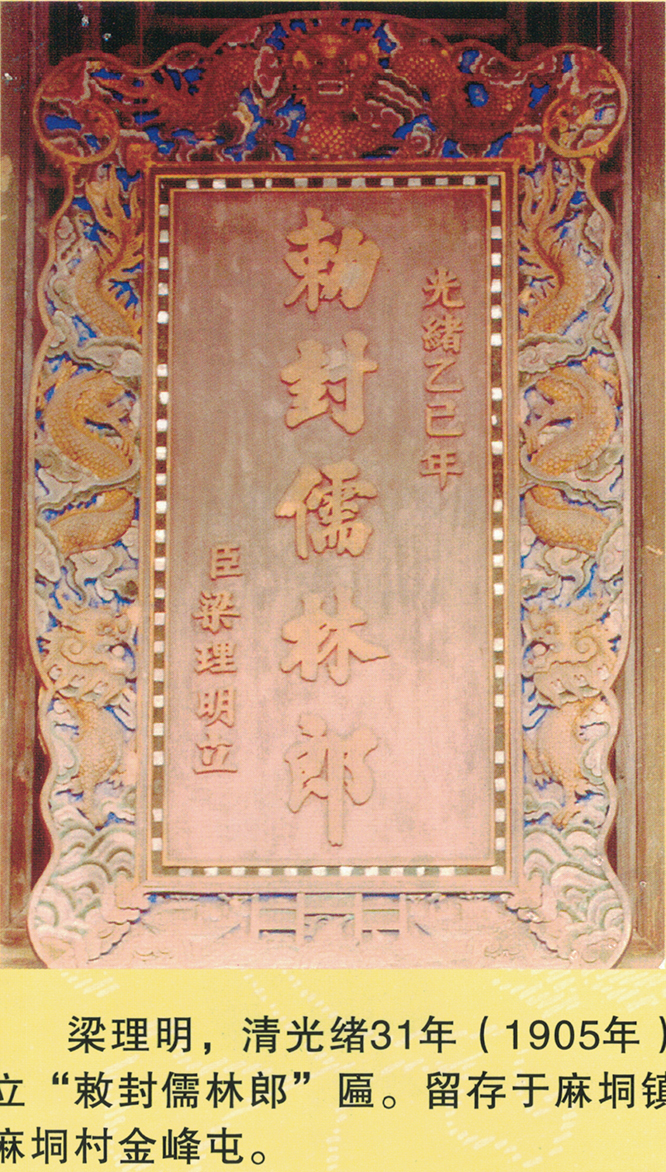 光緒乙巳年
勅封儒林郎
臣梁理明立
梁理明，清光绪31年（1905年）
立“敕封儒林郎”匾。留存于麻垌镇
麻垌村金峰屯。